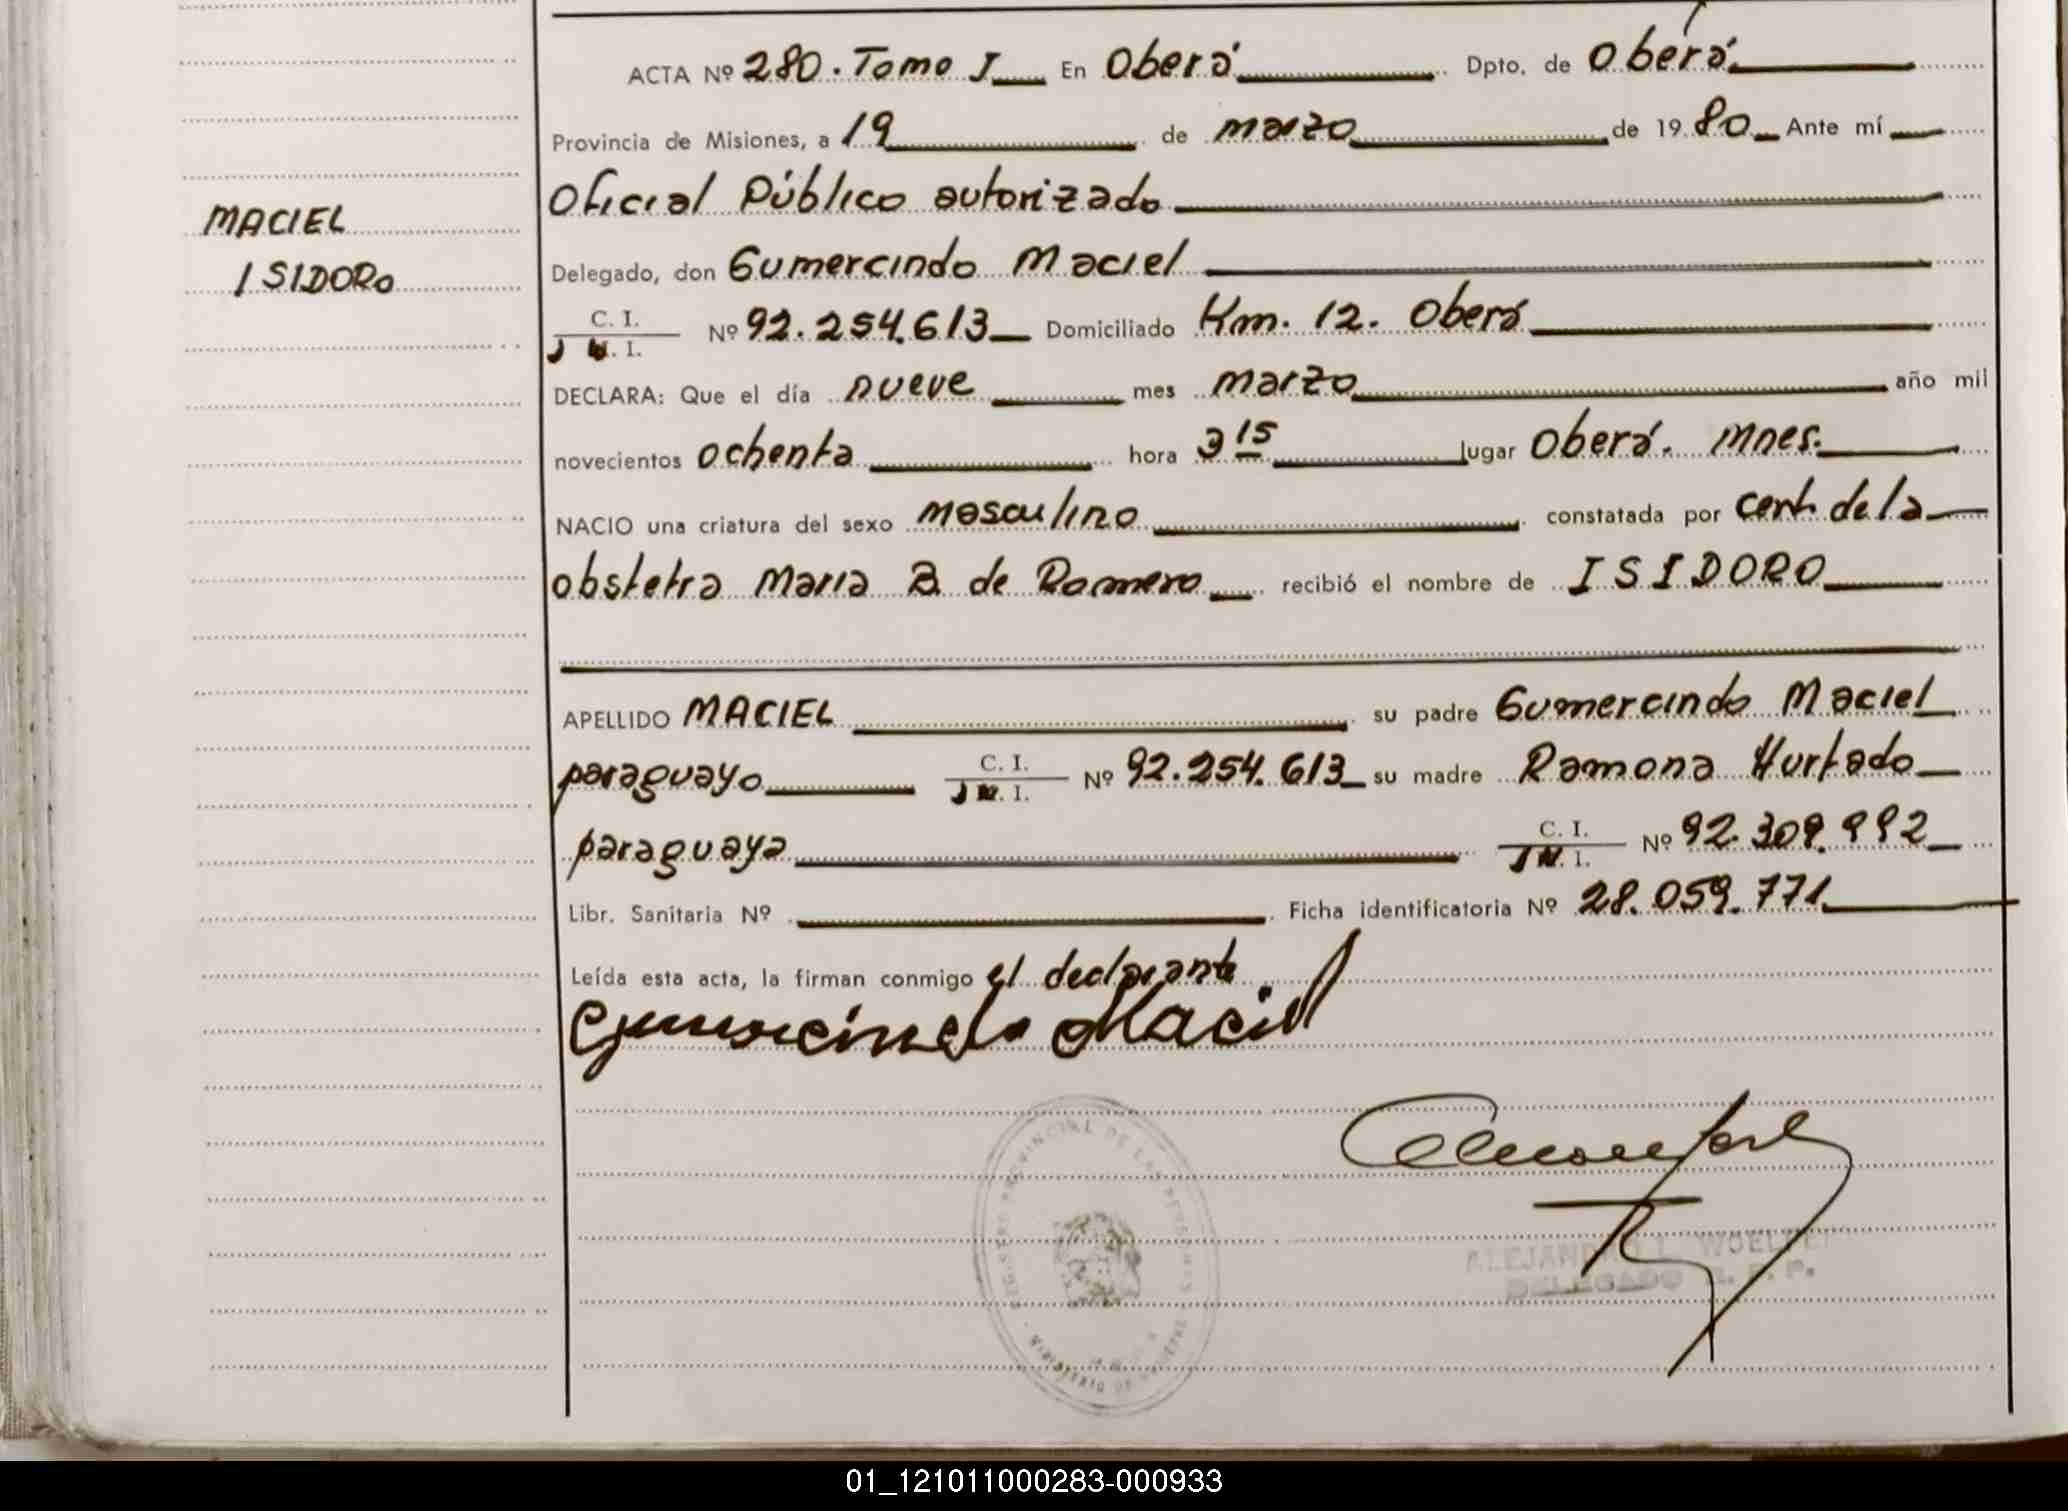 MACIEL
ISIDORO
ACTA Nº 280. Tomo I En Oberá Dpto. de Oberá
Provincia de Misiones, a 19 de marzo de 1980 Ante mí
Oficial Público autorizado
Delegado, don Gumercindo Maciel
C. I.
Nº 92.254.613 Domiciliado Km. 12. Oberá
DECLARA: Que el día nueve mes marzo año mil
novecientos ochenta hora 3 15 lugar Oberá. Mnes.
NACIO una criatura del sexo masculino constatada por cert. de la
obstetra Maria B. de Romero recibió el nombre de ISIDORO
APELLIDO MACIEL su padre Gumercindo Maciel
paraguayo C. I. Nº 92.254.613 su madre Ramona Hurtado
paraguaya C. I. Nº 92.309.992
Libr. Sanitaria Nº Ficha identificatoria Nº 28.059.771
Leída esta acta, la firman conmigo el declarante
Gumercindo Maciel
REGISTRO PROVINCIAL DE LAS PERSONAS
MINISTERIO DE
DELEGADO R. P. P.
01_121011000283-000933